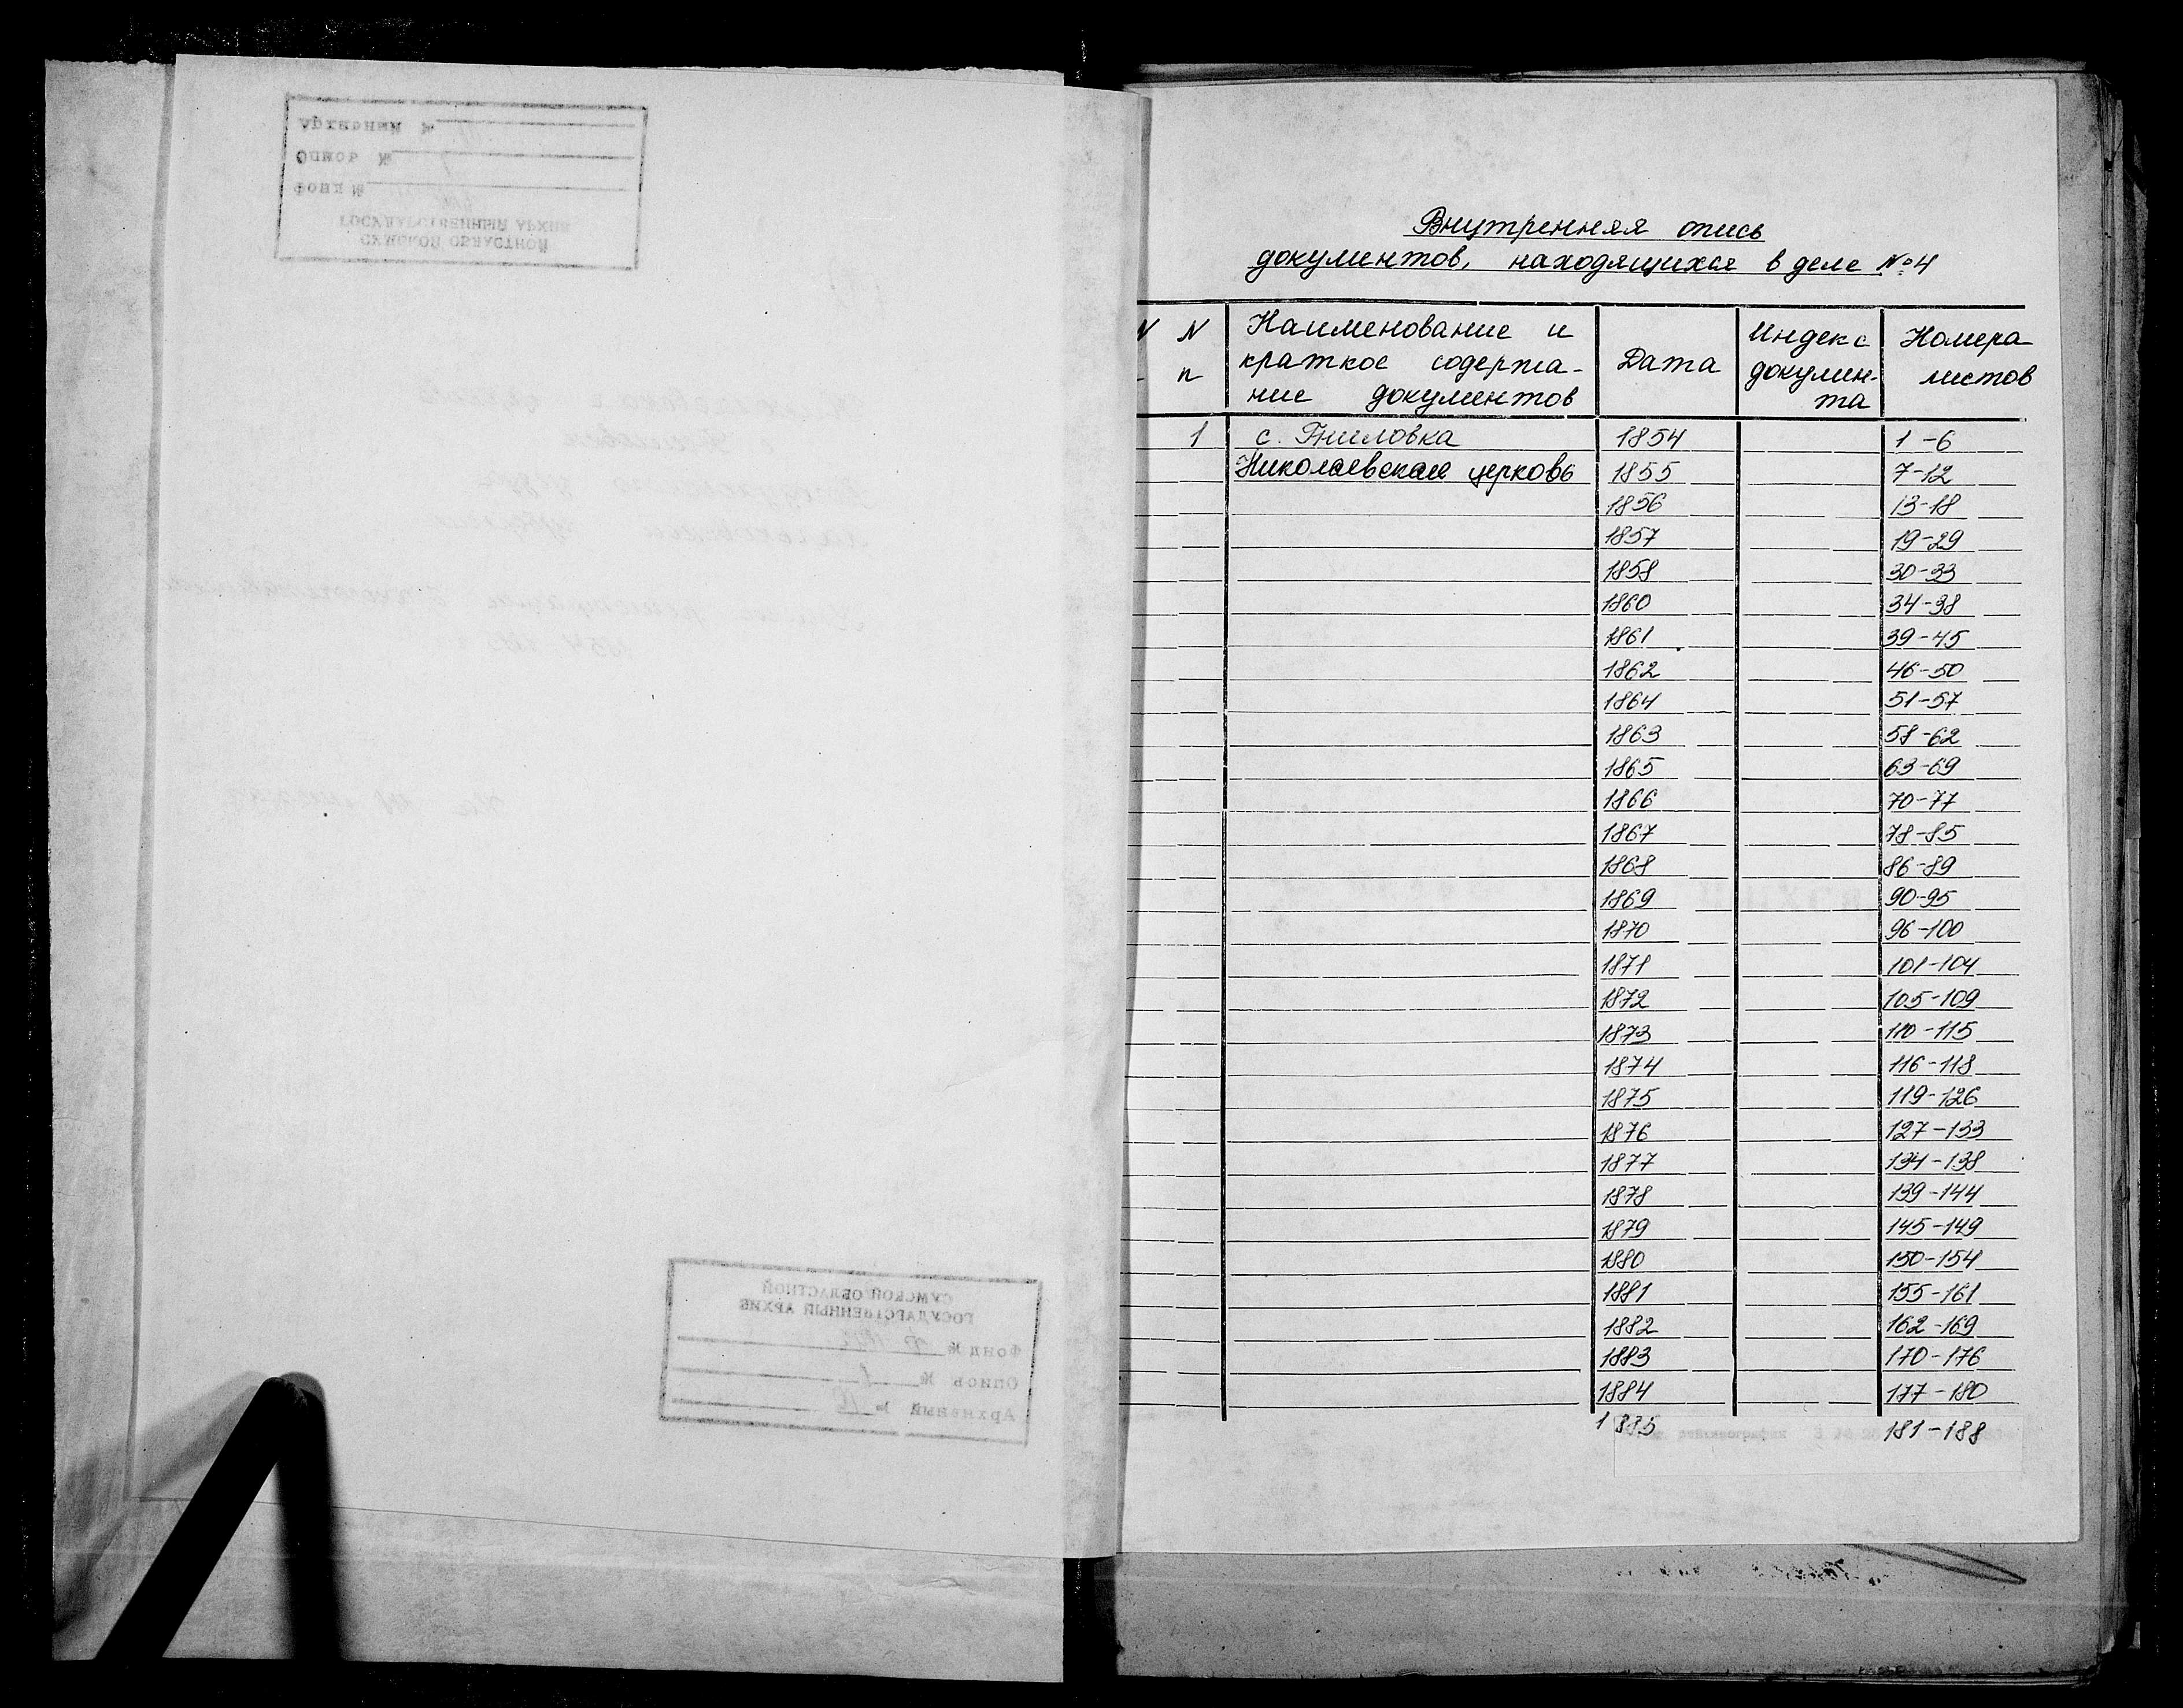 СУМСКОЙ ОБЛАСТНОЙ
ГОСУДАРСТВЕННЫЙ АРХИВ
Фонд №
Опись №
Архивный №
СУМСКОЙ ОБЛАСТНОЙ
ГОСУДАРСТВЕННЫЙ АРХИВ
Фонд №
Опись № 1
Архивный №
Внутренняя опись
документов, находящихся в деле № 4
N N Наименование и краткое содержа-ние документов Дата Индекс докумен-та Номера листов
п
1 с. Гниловка 1854 1-6
Николаевская церковь 1855 7-12
1856 13-18
1857 19-29
1858 30-33
1860 34-38
1861 39-45
1862 46-50
1864 51-57
1863 58-62
1865 63-69
1866 70-77
1867 78-85
1868 86-89
1869 90-95
1870 96-100
1871 101-104
1872 105-109
1873 110-115
1874 116-118
1875 119-126
1876 127-133
1877 134-138
1878 139-144
1879 145-149
1880 150-154
1881 155-161
1882 162-169
1883 170-176
1884 177-180
1885 181-188